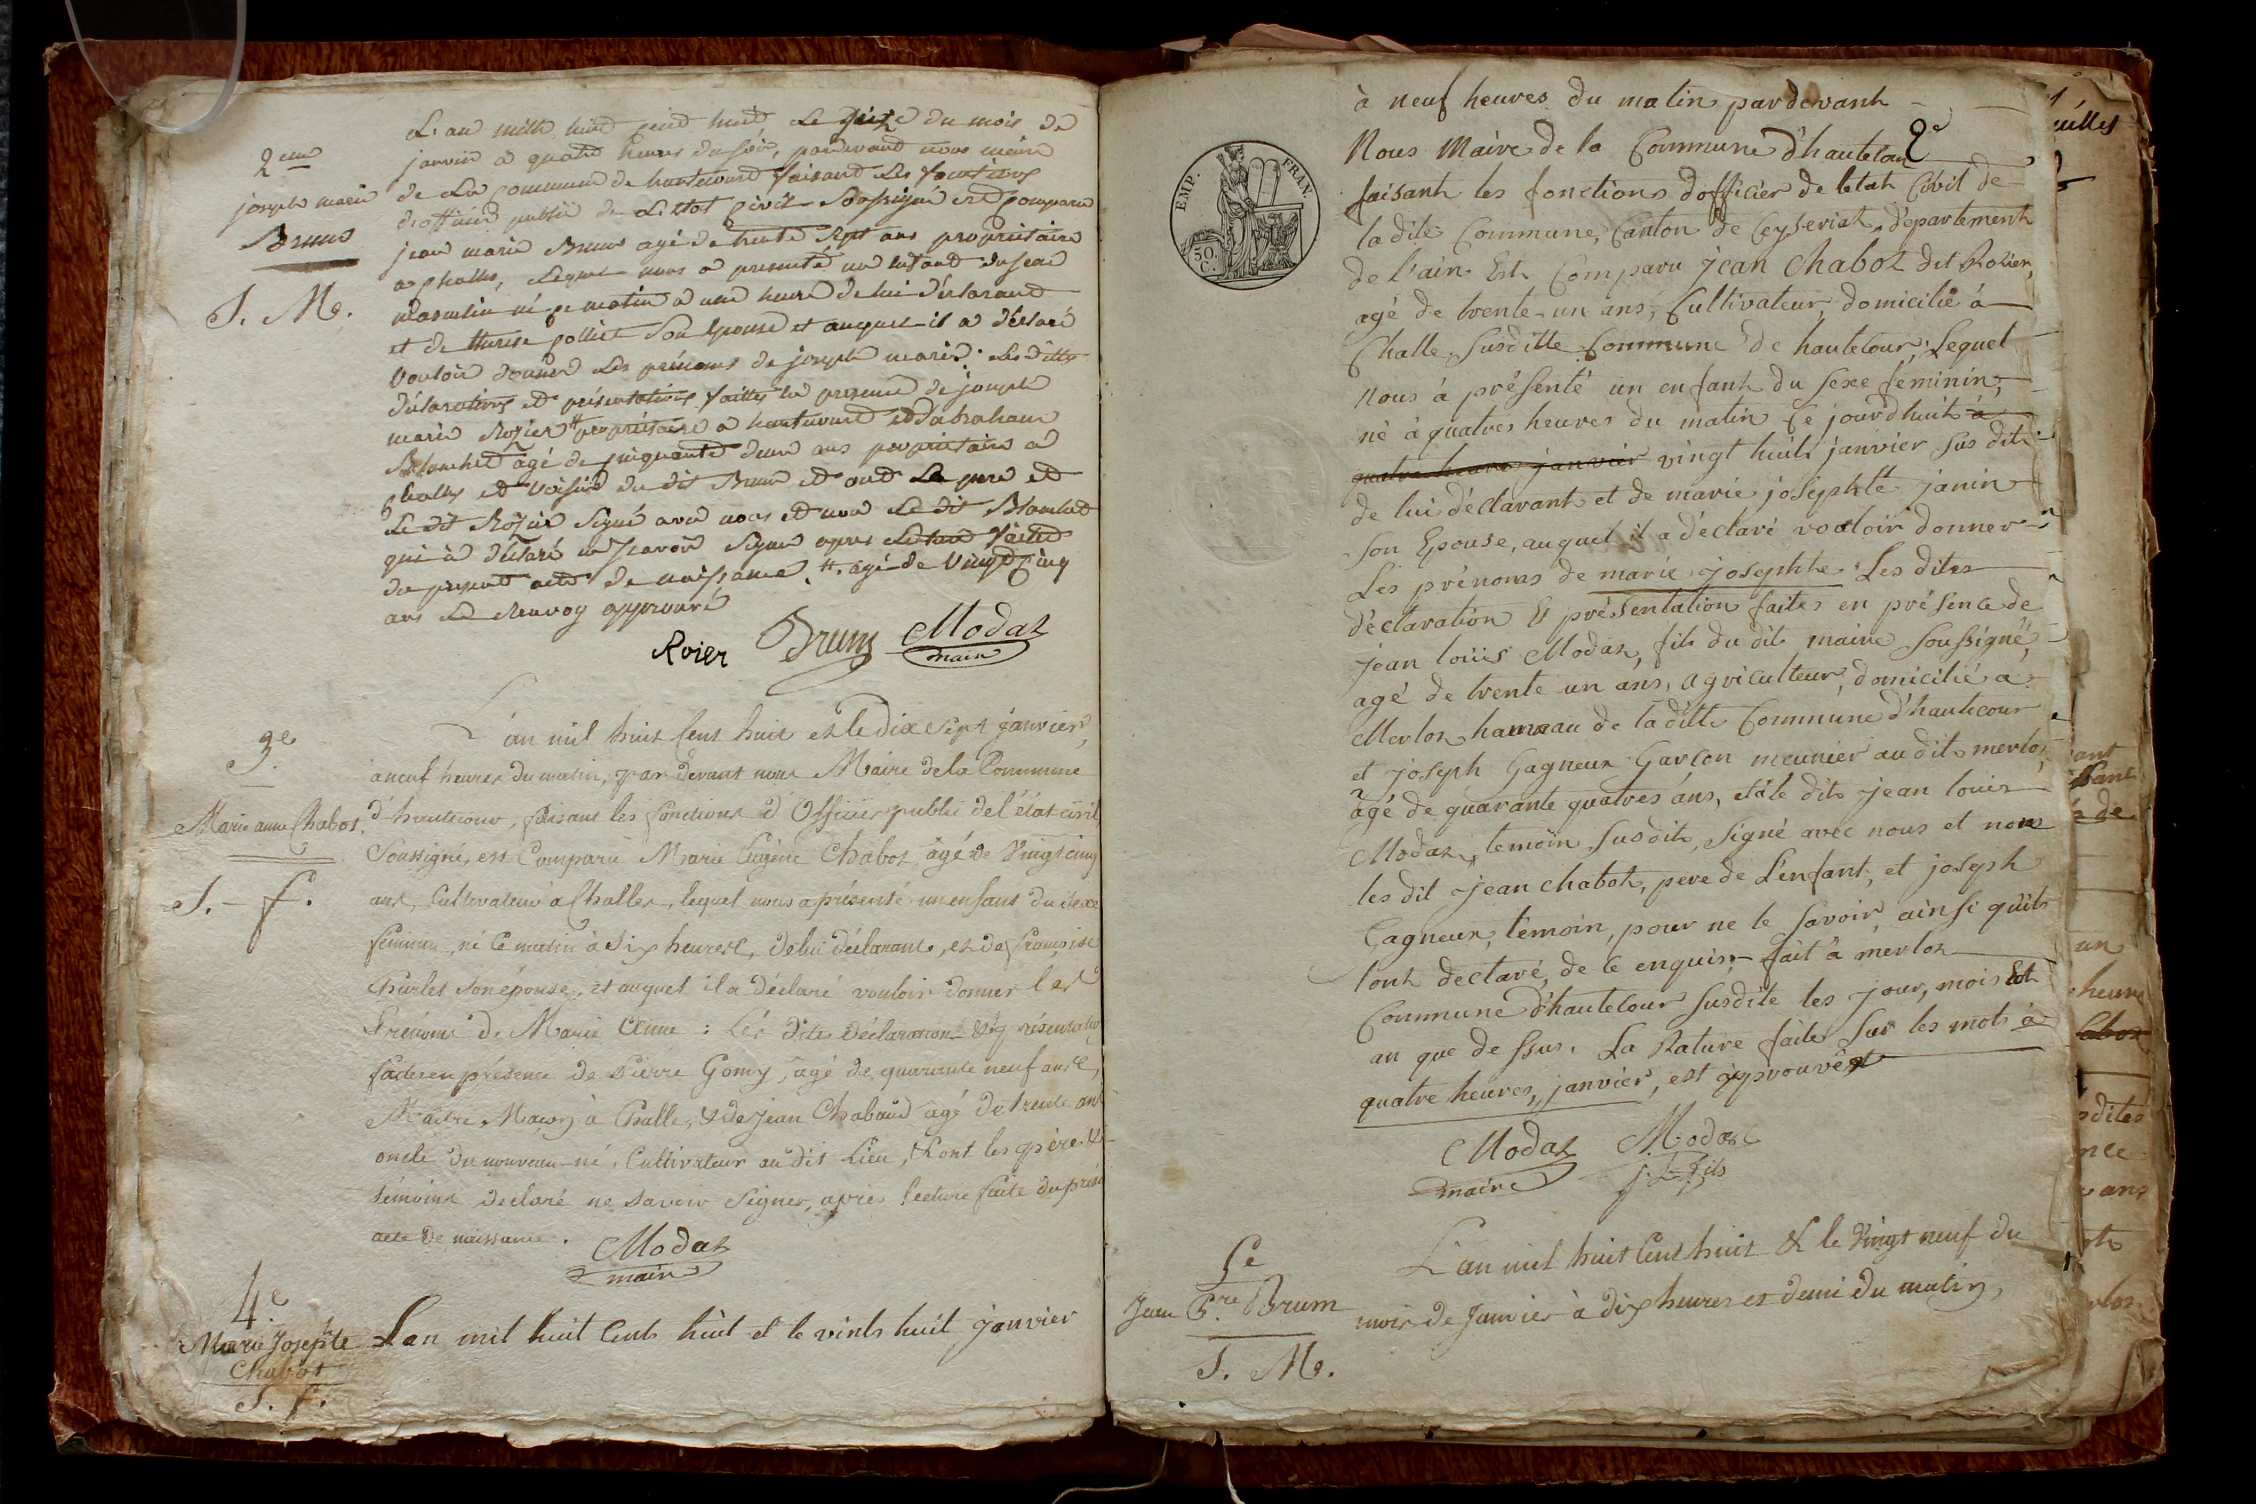 L'an mille huit cent huit Le seize du mois de
janvier a quatre heures du soir, pardevant nous maire
de La commune de hautecourt faisant Les fonctions
d'officier public de L'Etat Civil Soussigné est Comparu
jean marie Brum agé de trente Sept ans propriétaire
a challes, Lequel nous a presenté un enfant du sexe
masculin né ce matin a une heure de lui déclarant
et de therese pollier Son Epouse et auquel il a déclaré
Vouloir donner Les prénoms de joseph marie. Les dittes
déclarations et présentations faittes en presence de joseph
marie Rozier # propriétaire a hautecourt et d'abraham
Blanchet agé de cinquante deux ans proprietaire a
Challes et Voisin du dit Brum et ont Le pere et
Le dit Rozier Signé avec nous et non Le dit Blanchet
qui à déclaré ne Scavoir Signer apres Lecture faitte
du present acte de naissance. #. agé de Vingt Cinq
ans Le Renvoy approuvé
Roier Brum Modaz
maire
2eme
joseph marie
Brum
S. M.
3e
Marie anne Chabot.
S. - f.
L'an mil huit Cent huit et le dix Sept janvier,
a neuf heures du matin, par devant nous Maire de la Commune
d'hautecour, faisant les fonctions d'Officier public de l'état civil
Soussigné, est Comparu Marie Eugène Chabot, âgé de Vingt cinq
ans, Cultivateur à Challes, lequel nous a présenté un enfant du sexe
féminin, né Ce matin à Six heures, de lui déclarant, et de françoise
Churlet Son épouse, et auquel il a déclaré vouloir donner les
Prénoms de Marie Anne : Les dites déclaration & présentation
faites en présence de Pierre Gomy, âgé de quarante neuf ans,
Maitre Maçon à Challe, & de jean Chabaud agé de trente ans
oncle du nouveau-né, Cultivateur au dit Lieu, & ont les père &
témoins déclaré ne savoir Signer, après lecture faite du présent
acte de naissance.
Modaz
maire
4e
Marie Josephte
Chabot
S. f.
Lan mil huit Cents huit et le vints huit janvier
à neuf heures du matin pardevant
Nous Maire de la Commune d'hautecour 2e
faisant les fonctions d'officier de letat Civil de
la dite Commune, Canton de Ceyseriat, département
de l'ain Est Comparu jean Chabot dit Rozier,
agé de trente-un ans, Cultivateur, domicilié à
Challe, Susditte Commune de hautecour, Lequel
nous à présenté un enfant du sexe feminin,
né à quatres heures du matin Ce jourd'huit à
quatre heures janvier vingt huit janvier sus dit
de lui déclarant et de marie josephte janin
Son Epouse, auquel il a déclaré vouloir donner
Les prénoms de marie josephte. Les dites
déclaration & présentation faites en présence de
jean loüis Modaz, fils du dit maire Soussigné,
agé de trente un ans, agriculteur, domicilié a
Merloz hameau de ladite Commune d'hautecour
et joseph Gagneux Garçon meunier au dit merloz
agé de quarante quatres ans, et à le dit jean louis
Modaz, témoin Susdit, Signé avec nous et non
les dit jean chabot, pere de L'enfant, et joseph
Gagneux, témoin, pour ne le Savoir ainsi qu'ils
lont déclaré, de ce enquis, fait à merloz
Commune d'hautecour Susdite les jour, mois et
an que de ssus. La Rature faite Sur les mots à
quatre heures, janvier, est approuvée
Modaz Modaz
maire j. L. fils
5e
Jean Bre. Brum
S. M.
L'an mil huit Cent huit & le Vingt neuf du
mois de Janvier à dix heures et demi du matin,
EMP. FRAN.
50.
C.